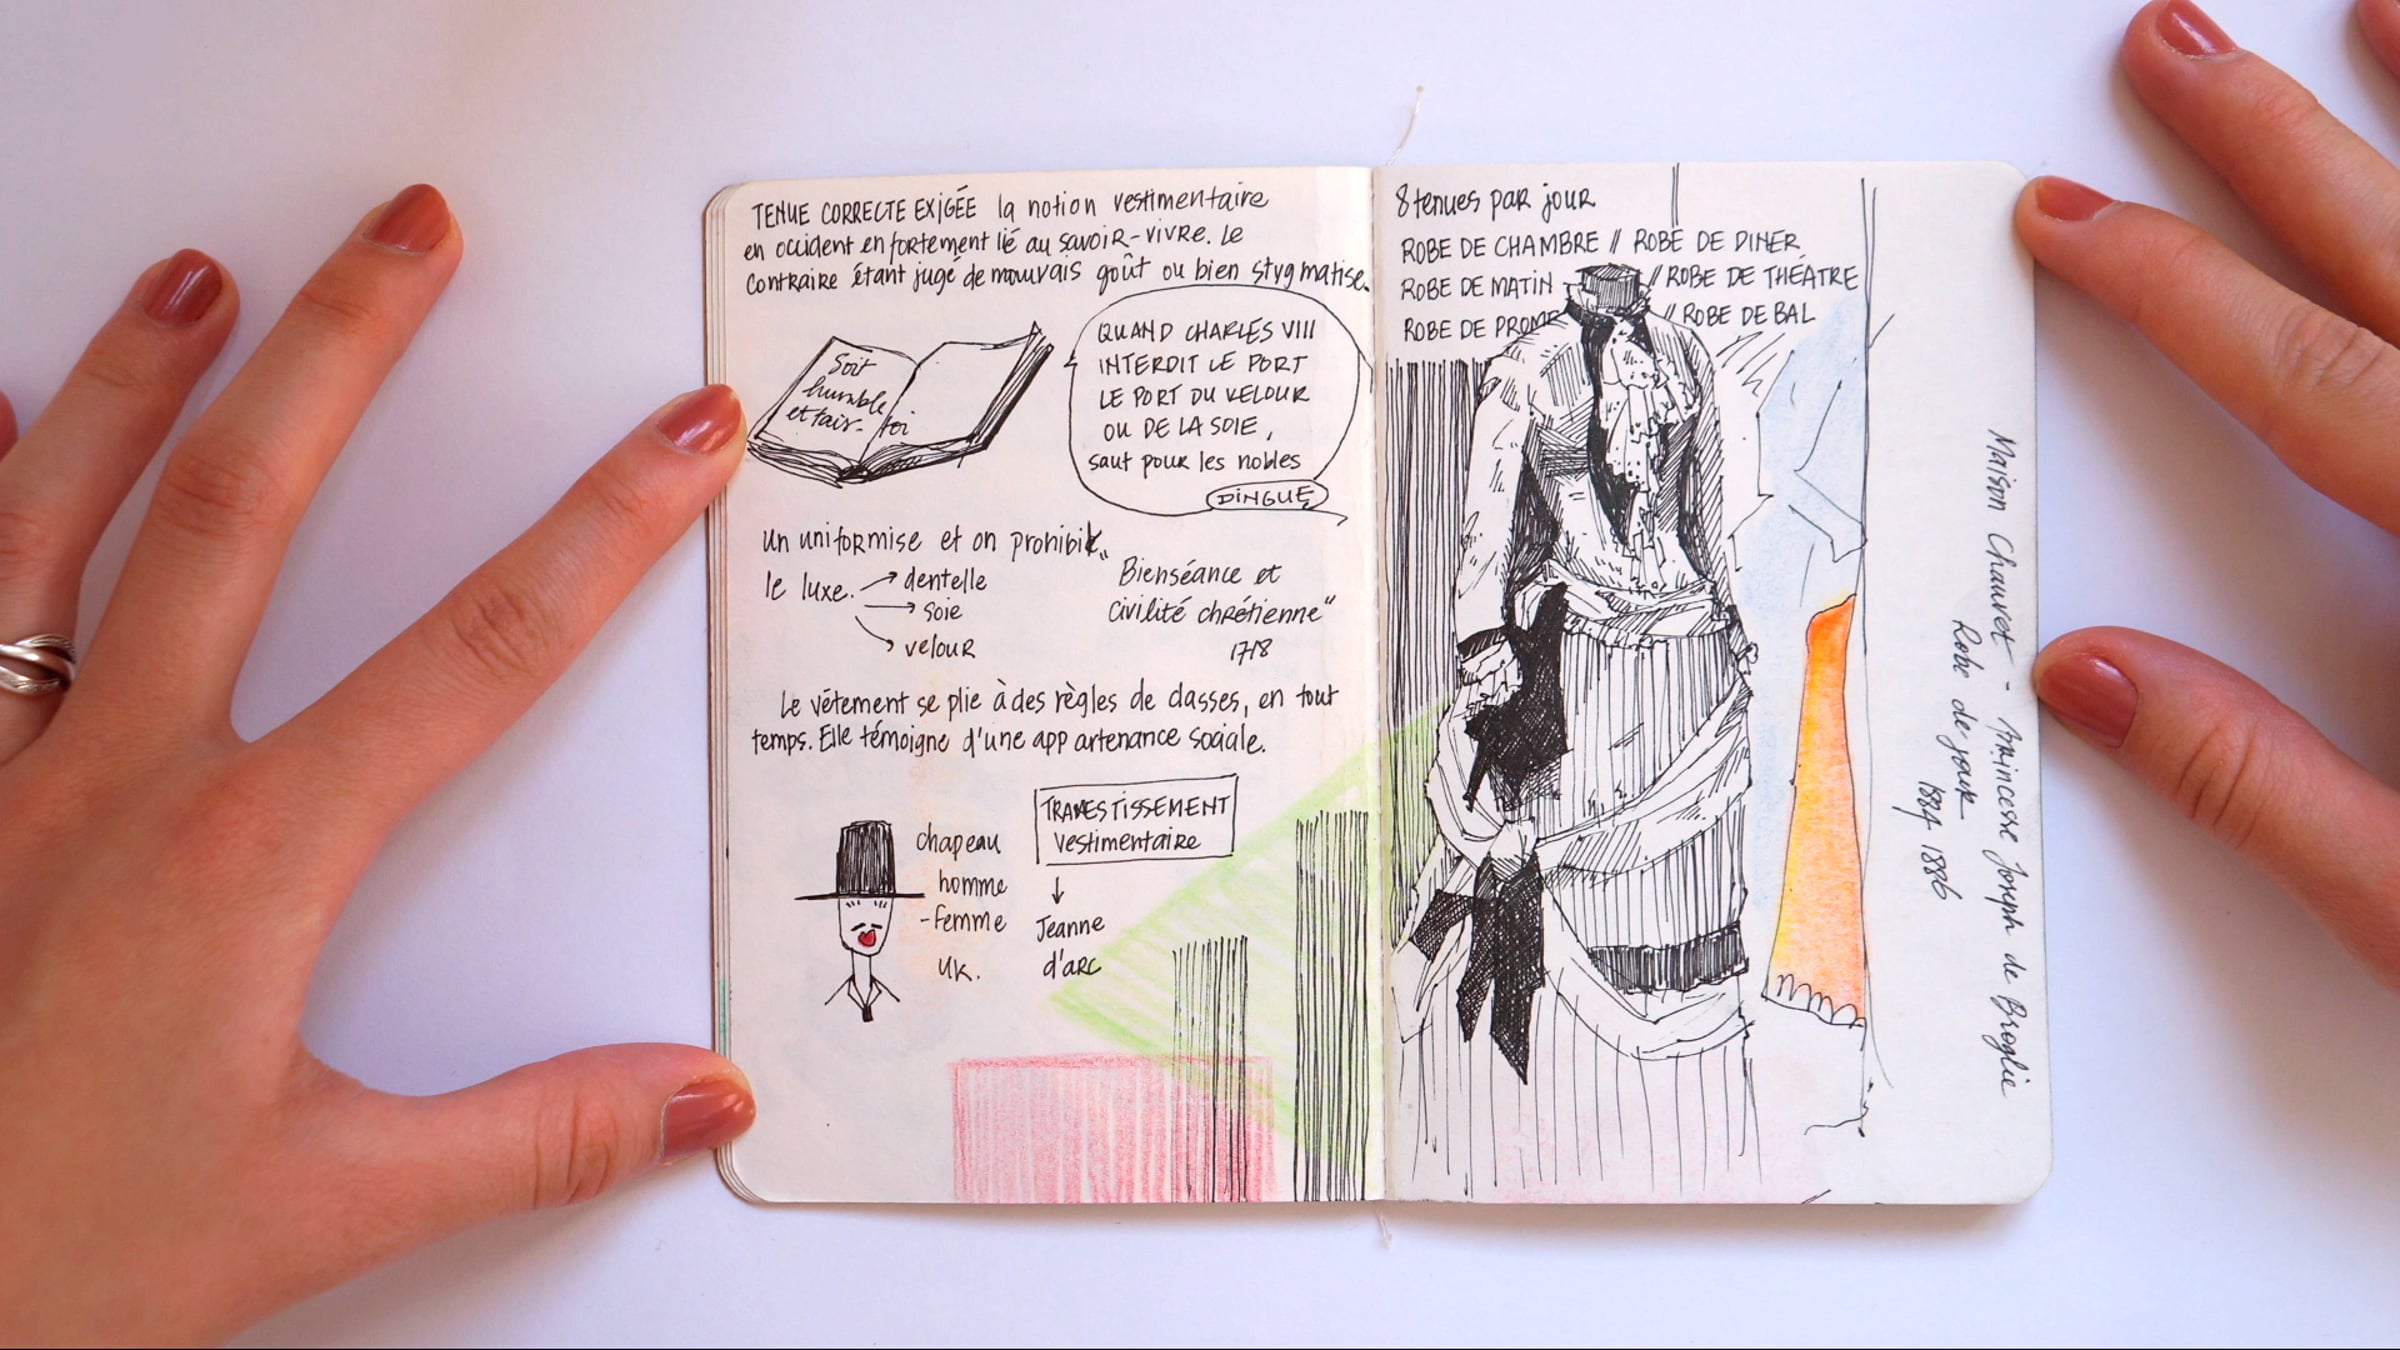 TENUE CORRECTE EXIGÉE la notion vestimentaire
en occident en fortement lié au savoir-vivre. Le
contraire étant jugé de mauvais goût ou bien stygmatise.
Soit
humble
et tais-toi
QUAND CHARLES VIII
INTERDIT LE PORT
LE PORT DU VELOUR
OU DE LA SOIE,
saut pour les nobles
DINGUE
un uniformise et on prohibit
le luxe. → dentelle
→ soie
→ velour
"Bienséance et
civilité chrétienne"
1718
Le vêtement se plie à des règles de classes, en tout
temps. Elle témoigne d'une appartenance sociale.
chapeau
homme
-femme
UK.
TRAVESTISSEMENT
vestimentaire
↓
Jeanne
d'arc
8 tenues par jour
ROBE DE CHAMBRE // ROBE DE DINER
ROBE DE MATIN // ROBE DE THÉATRE
ROBE DE PROME // ROBE DE BAL
Maison Chauvet - princesse Joseph de Broglie
Robe de jour
1884 1886